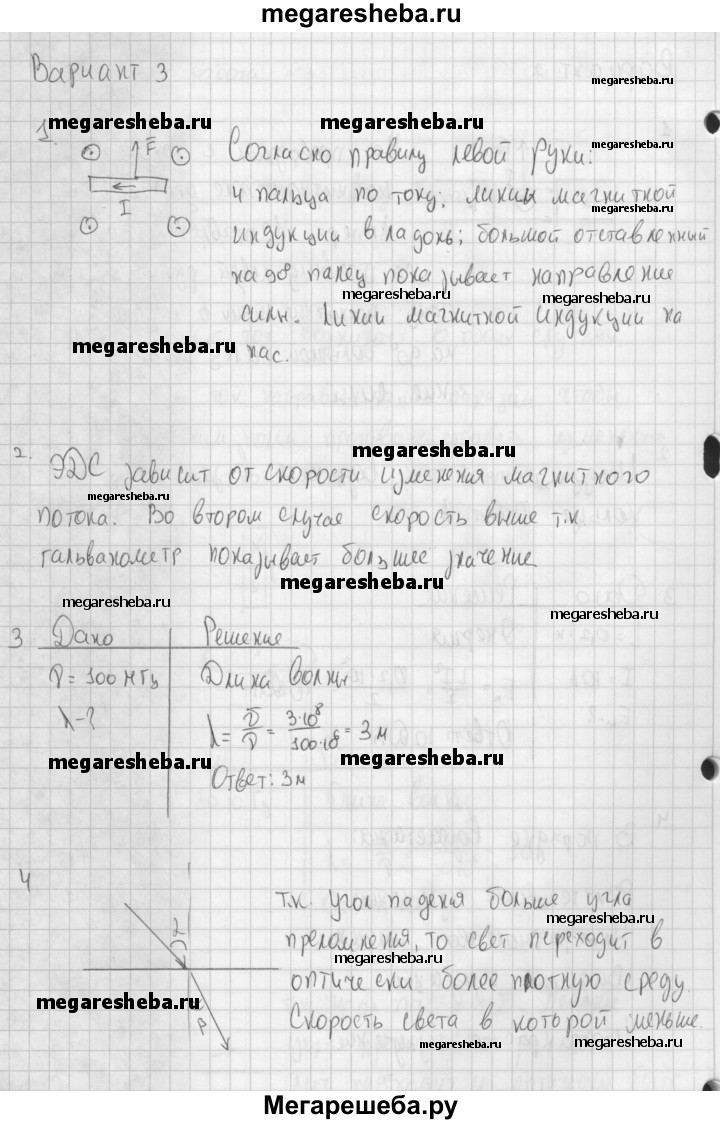 megaresheba.ru
Вариант 3
megaresheba.ru
megaresheba.ru
megaresheba.ru
megaresheba.ru
1.
F
I
Согласно правилу левой руки:
4 пальца по току; линии магнитной
megaresheba.ru
индукции в ладонь; большой отставленный
на 90° палец показывает направление
megaresheba.ru
megaresheba.ru
силы. Линии магнитной индукции на
нас.
megaresheba.ru
2. ЭДС зависит от скорости изменения магнитного
megaresheba.ru
megaresheba.ru
потока. Во втором случае скорость выше т.к
гальванометр показывает большее значение
megaresheba.ru
megaresheba.ru
megaresheba.ru
3 Дано
Решение
ν = 100 МГц
Длина волны
λ - ?
λ = υ/ν = 3·10⁸/100·10⁶ = 3 м
megaresheba.ru
megaresheba.ru
Ответ: 3м
4
т.к. угол падения больше угла
megaresheba.ru
преломления, то свет переходит в
megaresheba.ru
оптически более плотную среду.
megaresheba.ru
Скорость света в которой меньше.
megaresheba.ru
megaresheba.ru
α
β
Мегарешеба.ру